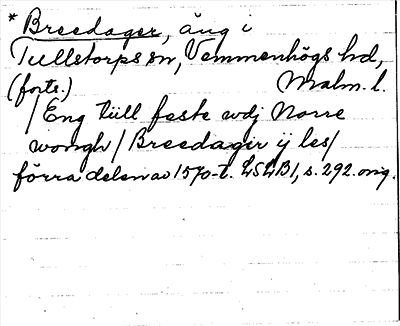 * Breedager, äng i
Tullstorps sn, Vemmenhögs hd,
(forts.) Malm. l.
/ Eng till feste wdj Norre
wongh / Breedagir ij les /
förra delen av 1570-t. LSLB1, s. 292. orig.